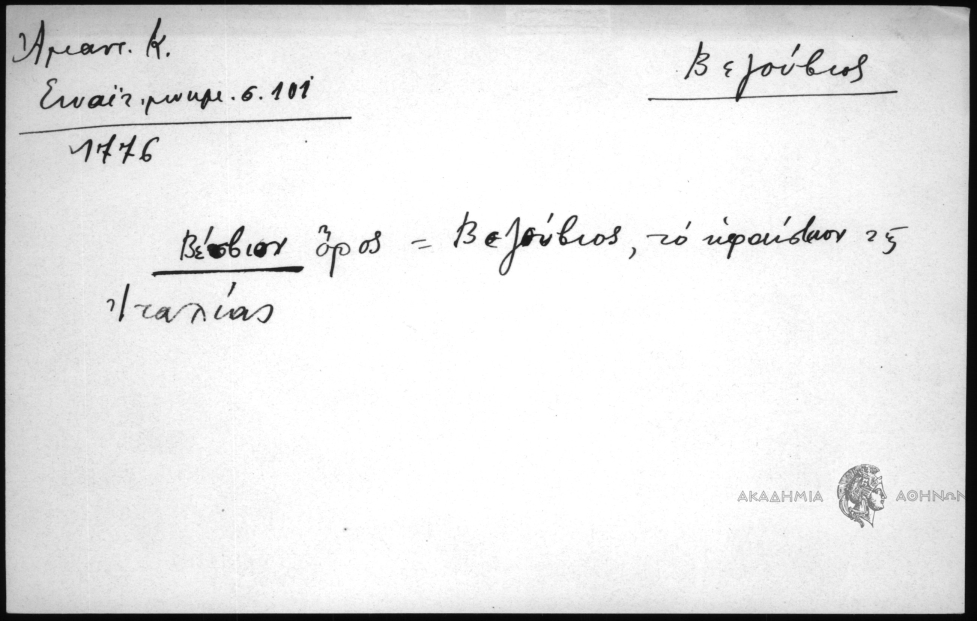 Ἄμαντ. Κ.
Βεζούβιος
Σιναϊτ. μνημ. σ. 101
1776
Βέσβιον ὄρος = Βεζούβιος, τό ἡφαίστειον τῆς
Ἰταλίας
ΑΚΑΔΗΜΙΑ ΑΘΗΝΩΝ